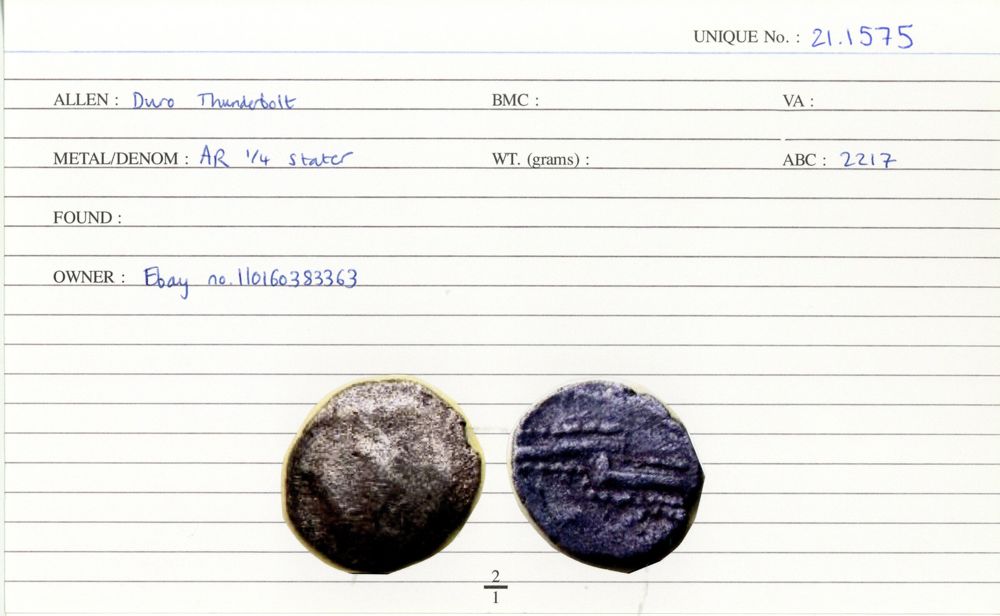 UNIQUE No. : 21.1575
ALLEN : Duro Thunderbolt BMC : VA :
METAL/DENOM : AR 1/4 stater WT. (grams) : ABC : 2217
FOUND :
OWNER : Ebay no.110160383363
2
1